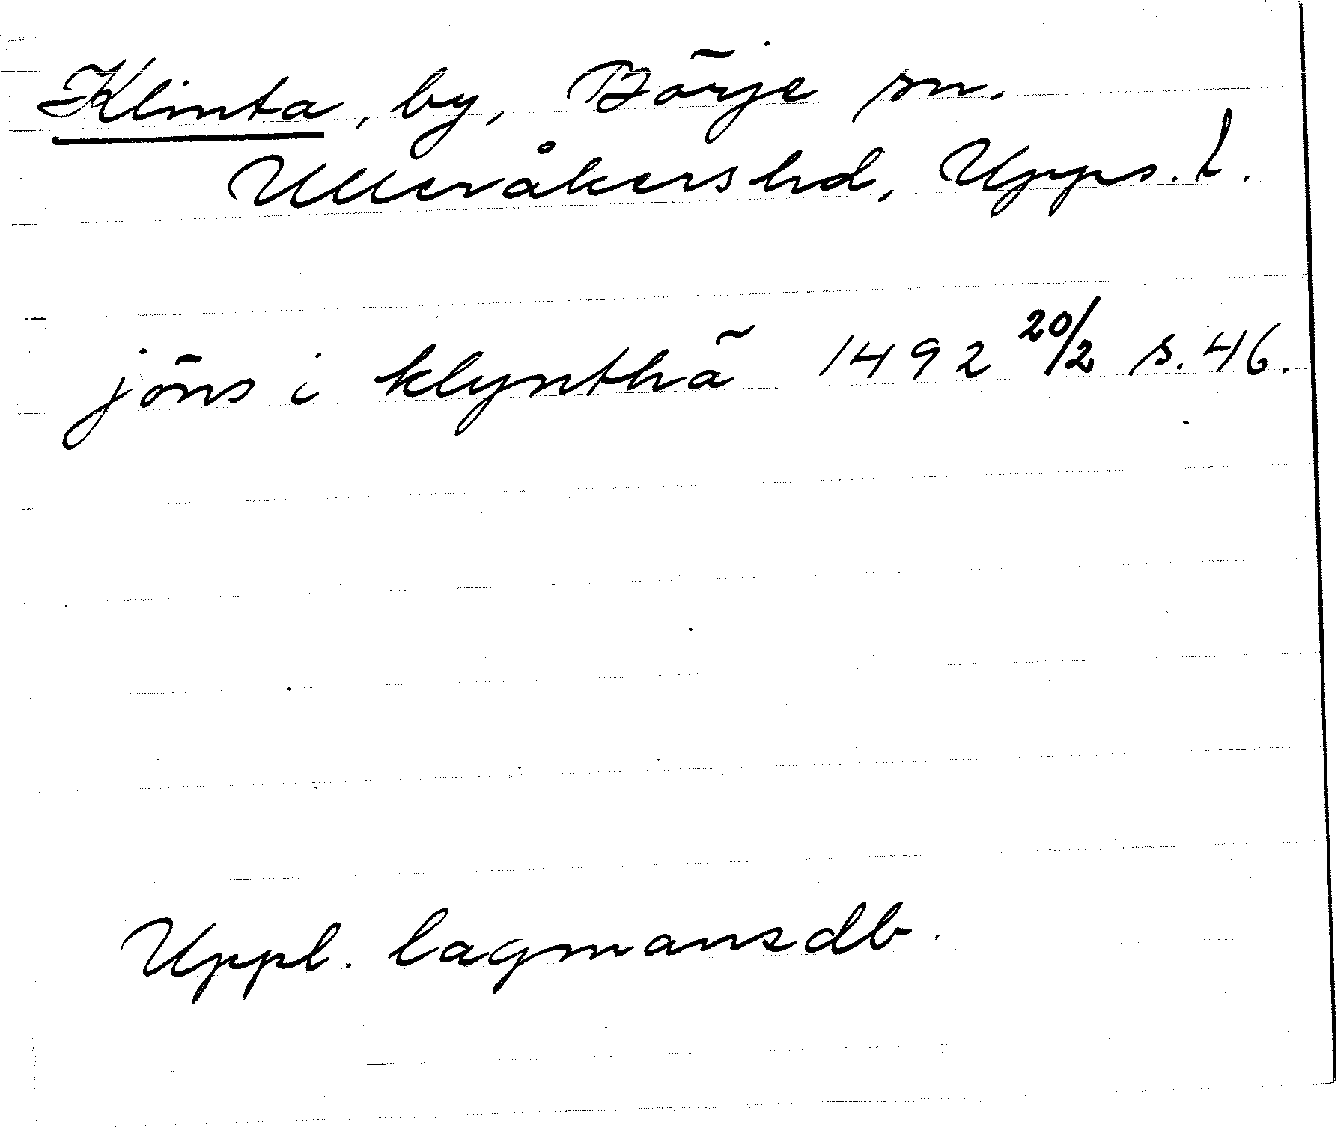 Klinta, by, Börje sn.
Ulleråkers hd, Upps. l.
jöns i klynthã 1492 20/2 s. 46.
Uppl. lagmansdb.